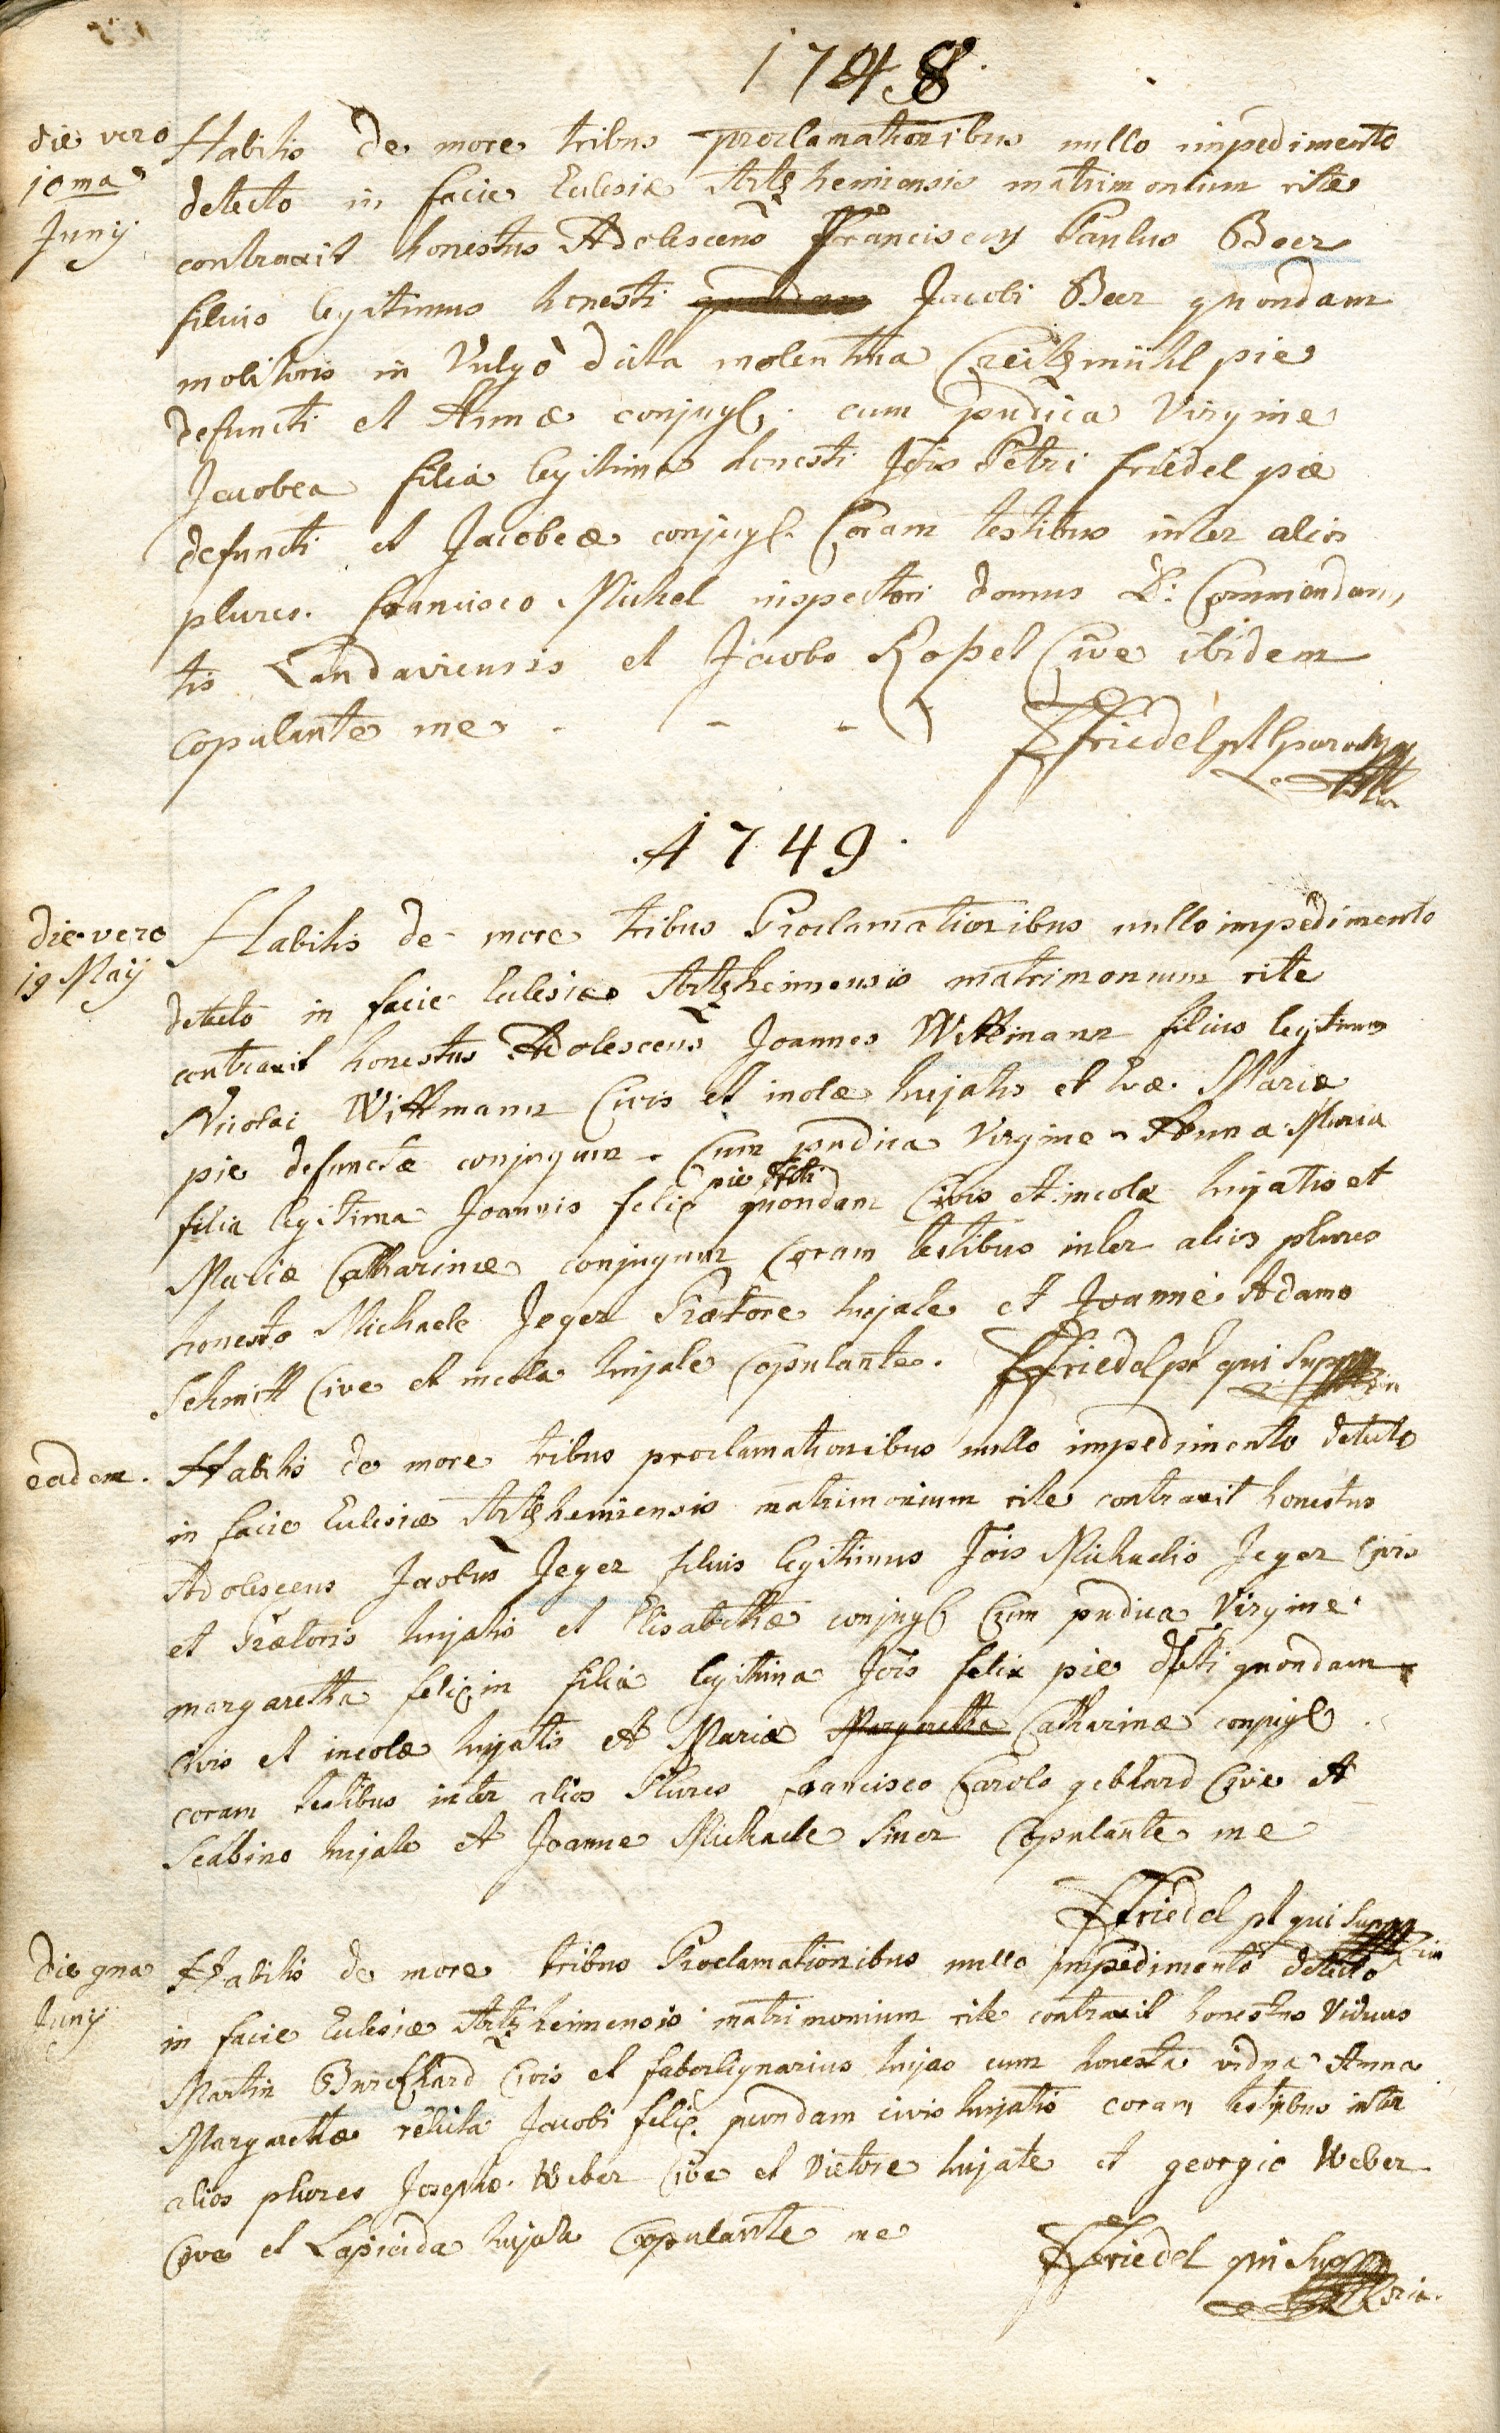 1748.
die vero
10ma
Junij
Habitis de more tribus proclamationibus nullo impedimento
detecto in facie Eclesiæ Artzhemiensis matrimonium rite
contraxit honestus Adolescens Franciscus Paulus Beer
filius legitimus honesti quondam Jacobi Beer quondam
molitoris in Vulgò dicta molentina Creitzmühl pie
defuncti et Annæ conjugs. cum pudica Virgine
Jacobea filia legitima honesti Jois Petri friedel piæ
defuncti et Jacobeæ conjugs. Coram testibus inter alios
plures. francisco Michel inspectori domus D: Commendan,
tis Landaviensis et Jacobo Kopel Cive ibidem
copulante me - - -
FFriedel pt parochus
1749.
die vero
19 Maij
Habitis de more tribus Proclamationibus nullo impedimento
detecto in facie Eclesiæ Artzheimensis matrimonium rite
contraxit honestus Adolescens Joannes Wittmann filius legitimus
Nicolai Wittmann Civis et incolæ hujatis et Evæ Mariæ
pie defunctæ conjugum. Cum pudica Virgine Anna Maria
filia legitima Joannis felix pie dfcti quondam Civis et incolæ hujatis et
Mariæ Catharinæ conjugum Coram testibus inter alios plures
honesto Michaele Jeger Prætore hujate et Joanne Adamo
Schmitt Cive et incola hujate Copulante. FFriedel pt qui Supra
eadem.
Habitis de more tribus proclamationibus nullo impedimento detecto
in facie Eclesiæ Artzhemiensis matrimonium rite contraxit honestus
Adolescens Jacobus Jeger filius legitimus Jois Michaelis Jeger Civis
et Prætoris hujatis et Elisabethæ conjugs Cum pudica Virgine
margaretha felixin filia legitima Jois felix pie dfcti quondam
Civis et incolæ hujatis et Mariæ Margaretha Catharinæ conjugs.
coram testibus inter alios Plures francisco Carolo gebhard Cive et
Scabino hujate et Joanne Michaele Siner Copulante me
FFriedel pt qui Supra
Die 9na
Junij
Habitis de more tribus Proclamationibus nullo impedimento detecto
in facie Eclesiæ Artzheimensis matrimonium rite contraxit honestus Viduus
Martin Burckhard Civis et faberlignarius hujas cum honesta vidua Anna
Margarethæ relicta Jacobi felix quondam civis hujatis coram testibus inter
alios plures Josepho Weber Cive et Vietore hujate et georgio Weber
Cive et Lapicida hujate Copulante me
FFriedel qui Supra